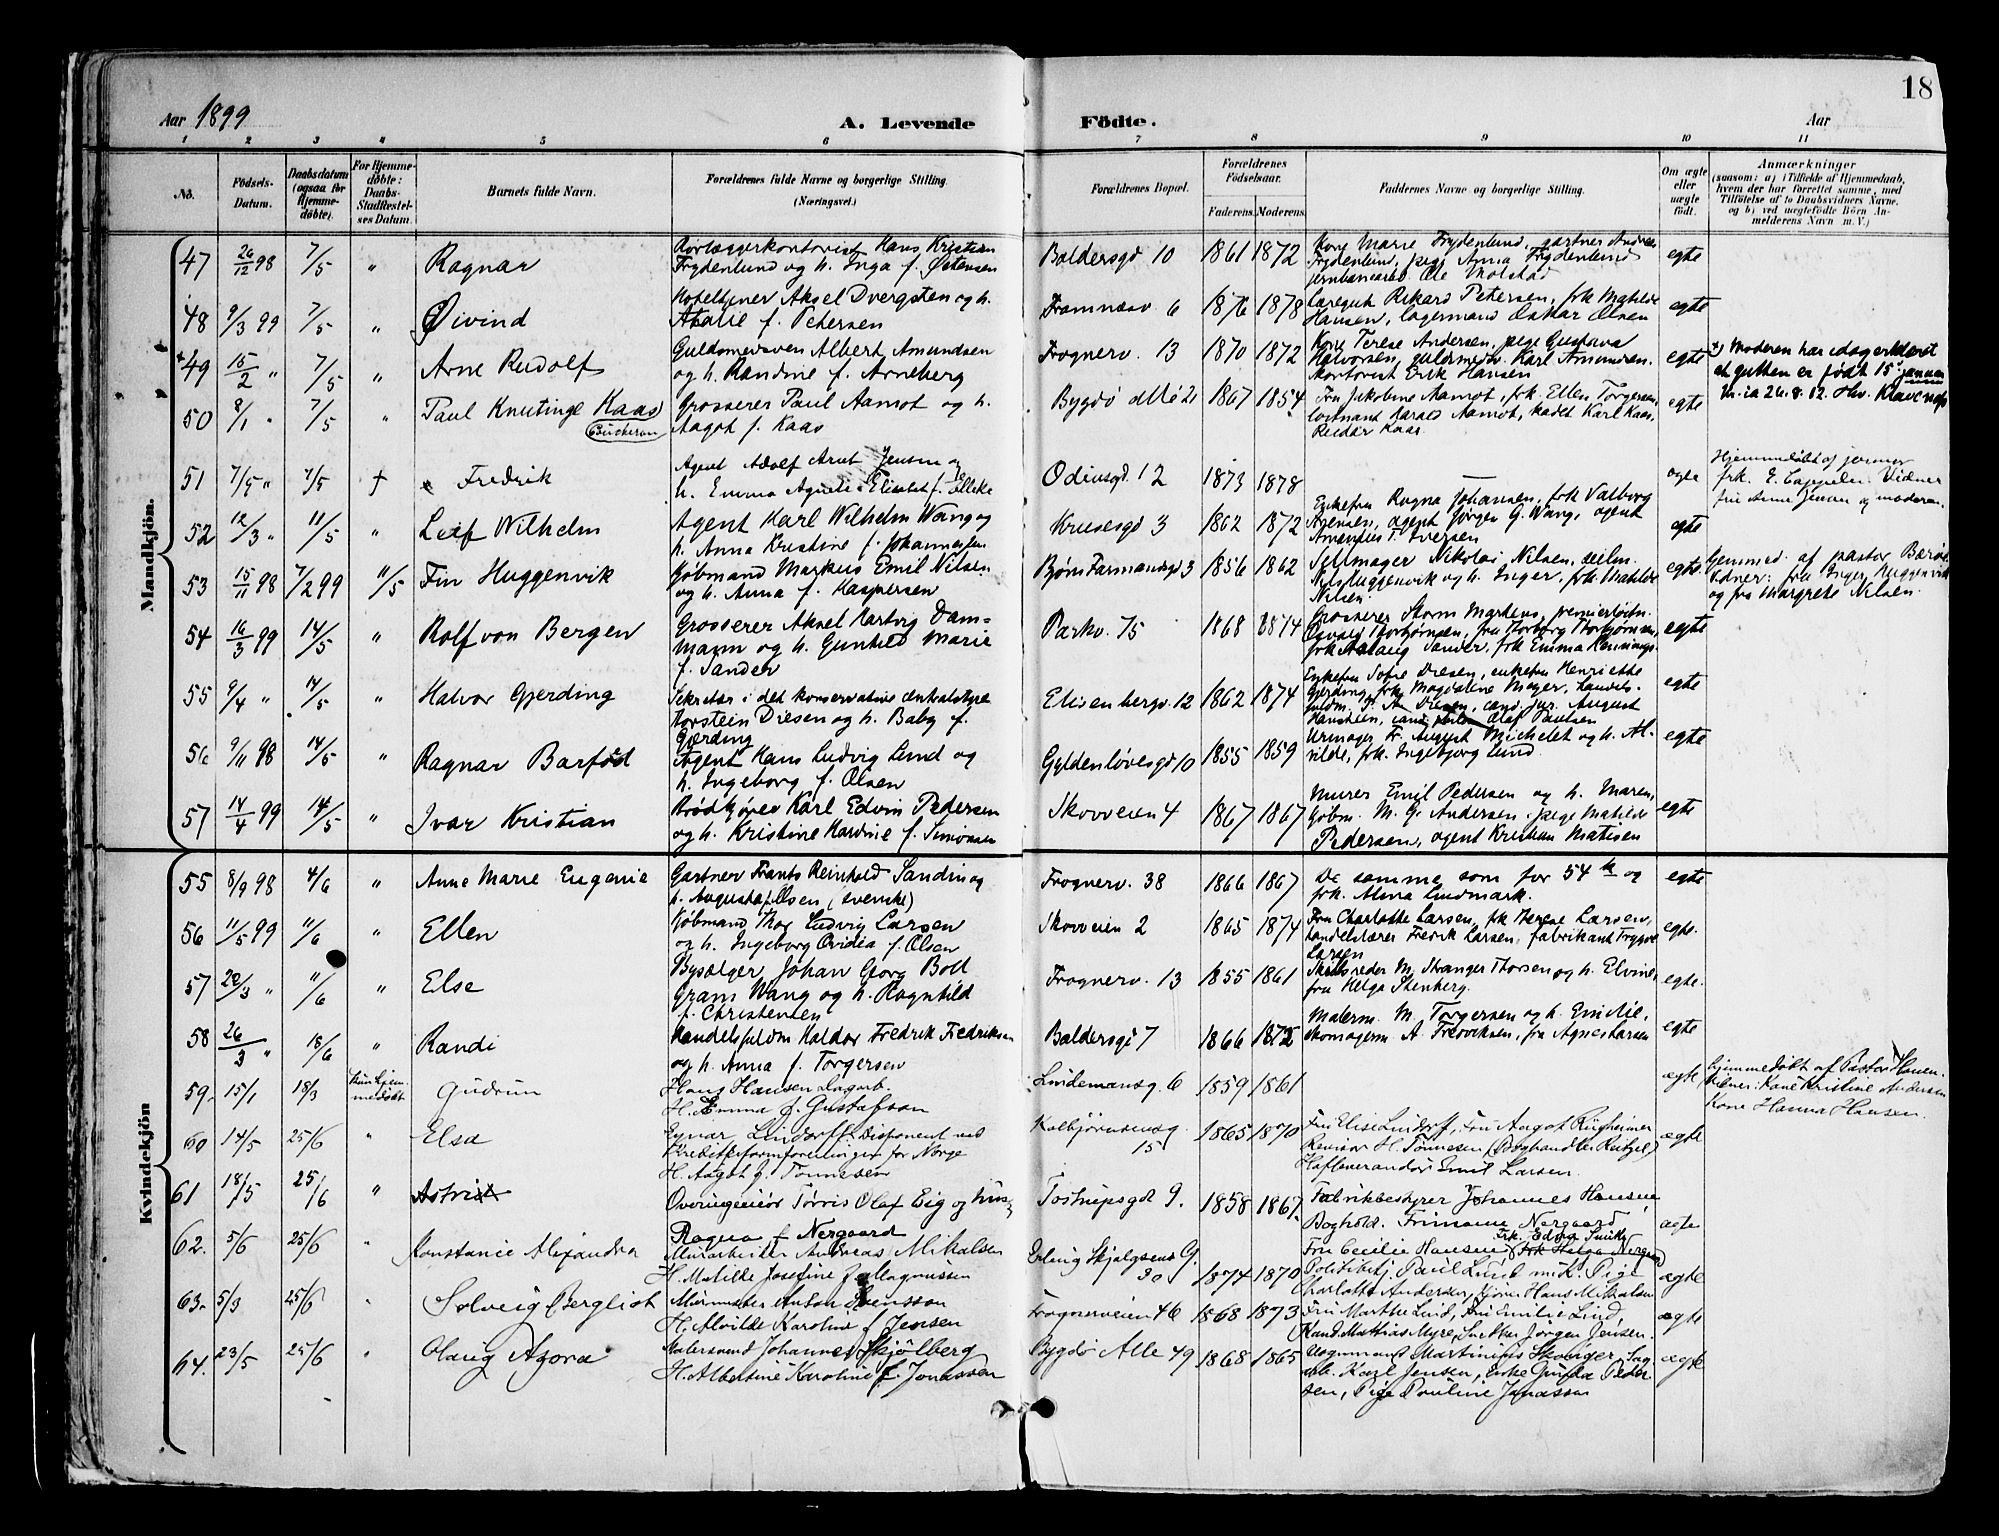 18
Aar 1899 A. Levende Födte. Aar
1 2 3 4 5 6 7 8 9 10 11
No. Födsels-Datum. Daabsdatum (ogsaa for Hjemmedöbte). For Hjemmedöbte: Daabs-Stadfæstelses Datum. Barnets fulde Navn. Forældrenes fulde Navne og borgerlige Stilling. (Næringsvei.) Forældrenes Bopæl. Forældrenes Födselsaar. Faderens. Moderens. Faddernes Navne og borgerlige Stilling. Om ægte eller uægte födt. Anmærkninger (saasom: a) i Tilfælde af Hjemmedaab, hvem der har forrettet samme, med Tilföielse af to Daabsvidners Navne, og b) ved uægtefödte Börn Anmelderens Navn m. V.)
Mandkjön.
47 26/12 98 7/5 " Ragnar Rørlæggerkontorist Hans Kristian Frydenlund og h. Inga f. Østensen Baldersgd 10 1861 1872 Kone Marie Frydenlund, gartner Andreas Frydenlund, pige Anna Frydenlund, jernbanearb. Ole Molstad egte
48 9/3 99 7/5 " Øivind Hoteltjener Aksel Dvergsten og h. Atalie f. Petersen Framnæsv 6 1876 1878 Læregut Rikard Petersen, frk Matilde Hansen, lagermand Oskar Olsen egte
+49 15/2 " 7/5 " Arne Rudolf Guldsmedsven Albert Amundsen og h. Randine f. Arneberg Frognerv. 13 1870 1872 Kone Terese Andersen, pige Gustava Halvorsen, guldsmedsv. Karl Amundsen, kontorist Erik Hansen egte +) Moderen har idag erklæret at gutten er født 15 januar
50 8/1 " 7/5 " Paul Knutinge Kaas Grosserer Paul Aamot og h. Aagot f. Kaas Bygdø allé 21 1867 1854 Fru Jakobine Aamot, frk Ellen Torgersen, løitnant Harald Aamot, kadet Karl Kaas, Reidar Kaas egte
51 7/5 " 7/5 + Fredrik Agent Adolf Arnt Jensen og h. Emma Agnete Elisabet f. Odinsgd 12 1873 1878 — egte Hjemmedøbt af jormor frk. E. Cappelen. Vidner fru Anne Jensen og moderen.
52 12/3 " 11/5 " Leif Wilhelm Agent Karl Wilhelm Wang og h. Anna Kristine f. Johannesen Krusesgd 3 1862 1872 Enkefru Ragna Johansen, frk Valborg agent Jørgen G. Wang, agent Iversen egte
53 15/11 98 7/2 99 11/5 Fin Huggenvik Kjøbmand Markus Emil Nilsen og h. Anna f. Kaspersen Bjørn Farmandsgd 3 1856 1862 Seilmager Nikolai Nilsen, seilm. Nils Huggenvik og h. Inger, frk Matilde Nilsen. egte. Hjemmed. af pastor Vidner: fru Inger Huggenvik og fru Margrete Nilsen.
54 16/3 99 14/5 " Rolf von Bergen Grosserer Aksel Hartvig Dammann og h. Gunhild Marie f. Sander Parkv. 75 1868 1874 Grosserer Storm Martens, premierløitn. Osvald Thorbjørnsen, fru Thorborg Thorbjørnsen, frk Aslaug Sander, frk Emma Hennings. egte
55 9/4 " 14/5 " Halvor Gjerding Sekretær i det konservative centralstyre Torstein Diesen og h. Baby f. Gjerding Elisenbergv. 12 1862 1874 Enkefru Sofie Diesen, enkefru Henriette Gjerding, frk Magdalene Meyer, handels- Diesen, cand. jur. August Hansteen, cand. philos Olaf Paulsen egte
56 9/11 98 14/5 " Ragnar Barfod Agent Hans Ludvig Lund og h. Ingeborg f. Olsen Gyldenløvesgd 10 1855 1859 Urmager Fr. August Michelet og h. Alvilde, frk. Ingebjorg Lund egte
57 14/4 99 14/5 " Ivar Kristian Brødkjører Karl Edvin Pedersen og h. Kristine Hardine f. Simonsen Skovveien 4 1867 1867 Murer Emil Pedersen og h. Maren, kjøbm. M. G. Andersen, pige Matilde Pedersen, agent Kristian Matisen egte
Kvindekjön
55 8/9 98 4/6 " Anne Marie Eugenie Gartner Frants Reinhold Sandin og h. Augusta f. Olsen (svenske) Frognerv. 38 1866 1867 De samme som for 54 k og frk. Alma Lindmark. egte
56 11/5 99 11/6 " Ellen Kjøbmand Thor Ludvig Larsen og h. Ingeborg Ovidia f. Olsen Skovveien 2 1865 1874 Fru Charlotte Larsen, frk Therese Larsen, handelslærer Fredrik Larsen, fabrikant Trygve Larsen egte.
57 22/3 " 11/6 " Else Bysælger Johan Georg Boll Gram Wang og h. Ragnhild f. Christensen Frognerv. 13 1855 1861 Skibsreder M. Stranger Thorsen og h. Elvine, fru Helga Stenberg. egte.
58 26/3 " 18/6 " Randi Handelsfuldm Haldor Fredrik Fredriksen og h. Anna f. Torgersen Baldersgd 7 1866 1872 Malerm. M. Torgersen og h. Emilie, Skomagerm A Fredriksen, fru Agnes Larsen egte
59. 15/1 18/3 kun hjemmedøbt Gudrun Hans Hansen Dagarb. H. Emma f. Gustafson Lindemansg. 6 1859 1861 ægte hjemmedøbt af Pastor Hansen. Vidner: Kone Kristine Andersen Kone Hanna Hansen.
60 14/5 25/6 " Elsa Eynar Lindorff Disponent ved Kreditreformforeningen for Norge H. Aagot f. Tønnesen Kolbjørnsensg. 15 1865 1870 Fru Elise Lindorf, Fru Aagot Ringheimer Revisor H. Tønnesen (Boghandler Reitzel) Hofleverandør Emil Larsen. ægte
61 18/5 25/6 " Astri Overingeniør Tørris Olaf Eig og hus- Ragna f Nergaard Tostrupsgd 9. 1858 1867. Fabrikbestyrer Johannes Hansen, Bogholds. Frimann Nergaard, Frk. Edna Smith ægte
62. 5/6 25/6 " Konstanse Alexandra Murarbeider Andreas Mikalsen H. Matilde Josefine f. Magnussen Erling Skjalgsens G. 30 1874 1870 Fru Cecilie Hansen (frk Helga Nergaard) Politibetj. Paul Lund m. k. Pige Charlotte Andersen, Kjører Hans Mikalsen ægte
63. 5/3 25/6 " Solveig Bergliot Murmester Anton Svensson H. Alvilde Karoline f. Jensen Frognerveien 46 1868 1873 Fru Marthe Lind, Fru Emilie Lind, Kand. Mattias Myre, Snedker Jørgen Jensen. ægte
64. 23/5 25/6 " Olaug Agora Malersvend Johannes Skjølberg H. Albertine Karoline f. Jonassen Bygdø Alle 49 1868 1865 Vognmand Martinius Skoviger, Dagarb. Karl Jensen, Enke Gunda Pedersen, Pige Pauline Jonassen ægte